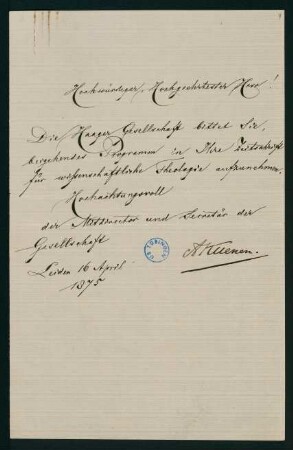 Hochwürdiger, Hochgeehrtester Herr!
Die Haager Gesellschaft bittet Sie,
hiergehendes Programm in Ihre Zeitschrift
für wissenschaftliche Theologie aufzunehmen.
Hochachtungsvoll
der Mitdirector und Secretär der
Gesellschaft
A Kuenen.
Leiden 16 April
1875